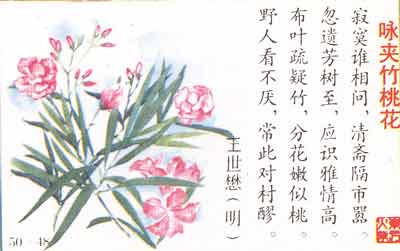 咏夹竹桃花
寂寞谁相问，清斋隔市嚣。
忽遗芳树至，应识雅情高。
布叶疏疑竹，分花嫩似桃。
野人看不厌，常此对村醪。
王世懋（明）
50-48